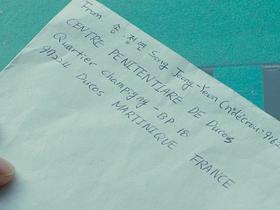 From 송 정연 Song Jeong-Yeon
CENTRE PENITENTIARE DE Ducos
Quartier champigny - BP 18
97224 Ducos MARTINIQUE
FRANCE